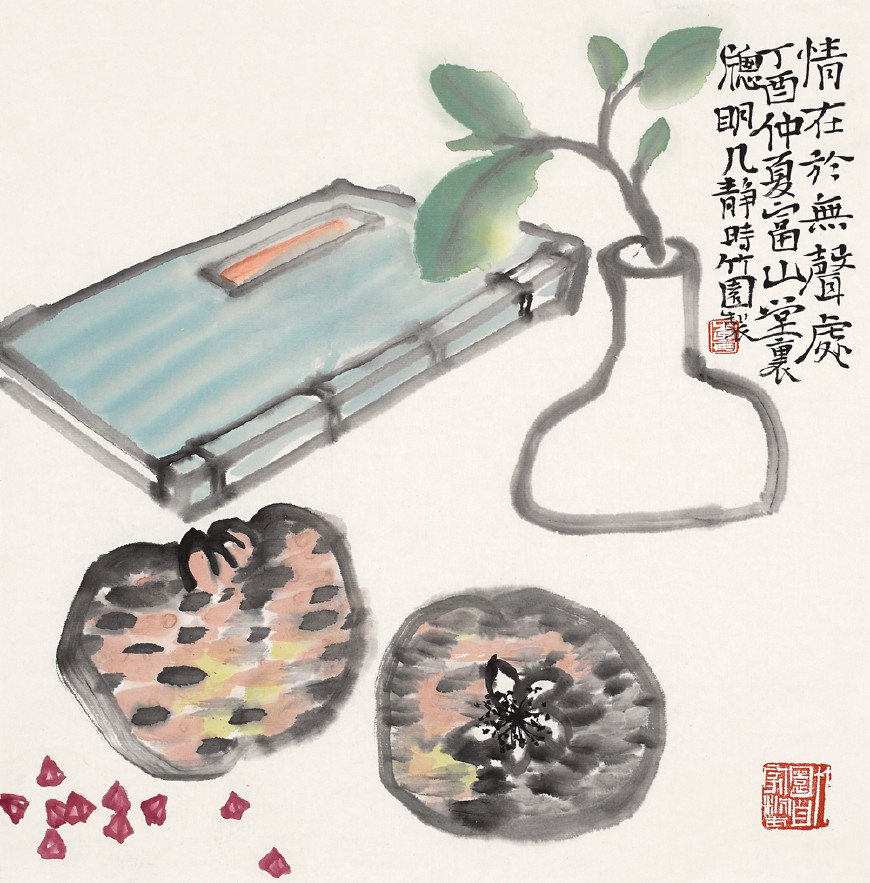 情在於無聲處
丁酉仲夏富山堂裏
牕明几静時竹園製